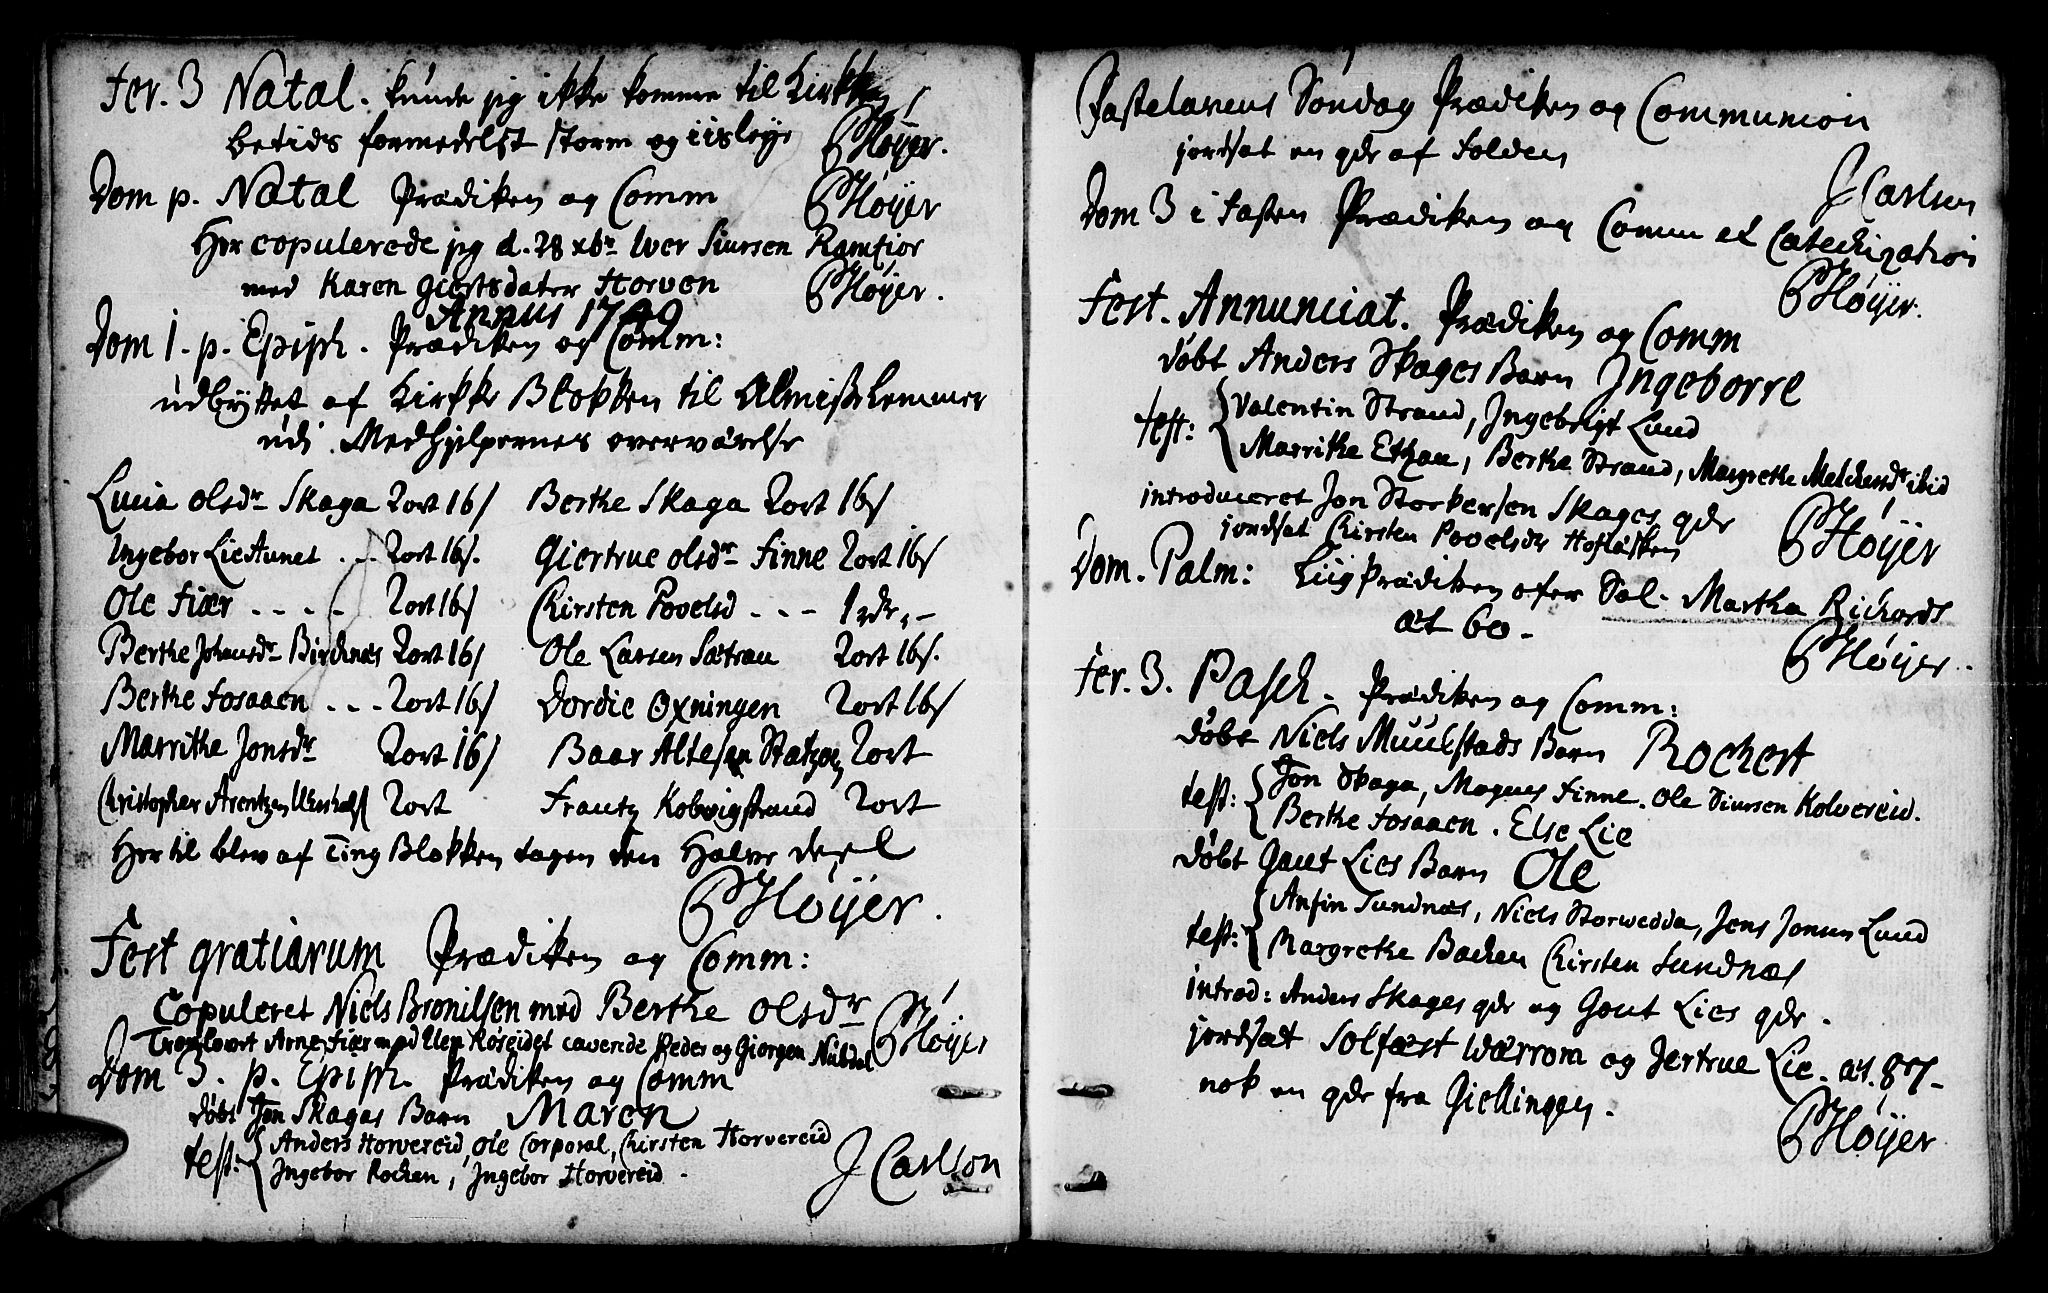 Fer. 3 Natal. kunde jeg ikke komme til Kirke
betids formedelst storm og iisleye PHøyer.
Dom p. Natal Prædiken og Comm PHøyer
Her copulerede jeg d. 28 xbr Iver Siursen Ramfior
med Karen Giertsdater Horven PHøyer.
Annus 1749
Dom 1. p. Epiph. Prædiken og Comm:
udbyttet af Kirke Blokken til Almisse Lemmer
udi Medhielpernes overværelse
Lucia Olsdr Skaga 2ort 16 s Berthe Skaga 2ort 16 s
Ingebor Lie Aunet . . 2ort 16 s. Giertrue Olsdr Finne 2ort 16 s
Ole Fiær - - - - 2ort 16 s Chirsten Povelsd - - - 1 rdr. -
Berthe Johansdr Birdenæs 2ort 16 s Ole Larsen Sætran 2ort 16 s.
Berthe Fosaaen - - - 2ort 16 s Dordie Oxningen 2ort 16 s
Marrithe Jonsdr 2ort 16 s Baar Altesen Statzen 2ort
Christopher Arentzen 2ort Frantz Kolvigstrand 2ort
Her til blev af Ting Blokken tagen den Halve deel
PHøyer.
Fest gratiarum Prædiken og Comm:
Copuleret Niels Bronilsen med Berthe Olsdr PHøyer
Trolovet Arne Fiær med Elen Røseidet cavende Peder og Giorgen Nubdal
Dom 3. p. Epiph. Prædiken og Comm
døbt Jon Skages Barn Maren
test: Anders Horvereid, Ole Corporal, Chirsten Horvereid
Ingebor Rochen, Ingebor Horvereid - J Carlson
Fastelavens Søndag Prædiken og Communion
jordsat en qde af Folden
J Carlsen
Dom 3 i Fasten Prædiken og Comm et Catechization
PHøyer.
Fest. Annunciat. Prædiken og Comm
døbt Anders Skages Barn Ingeborre
test: Valentin Strand, Ingebrigt Lund
Marrithe Etzan, Berthe Strand, Margrethe Melchersdr ibid
introduceret Jon Storkersen Skages qde
jordsat Chirsten Povelsdr Hoflasken PHøyer
Dom. Palm: Liig Prædiken ofer Sal. Martha Richards
æt 60 -
PHøyer.
Fer. 3. Pasch. Prædiken og Comm:
døbt Niels Muulstads Barn Rochert
test: Jon Skaga, Magnus Finne. Ole Siursen Kolvereid.
Berthe Fosaaen. Else Lie
døbt Gaut Lies Barn Ole
Anfin Sundnæs, Niels Storwedda, Jens Jonsen Lund
test: Margrethe Bachen Chirsten Sundnæs
introd: Anders Skages qde og Gout Lies qde.
jordsat Solfæst Wærrom og Jertrue Lie. æt. 87 -
nok en qde fra Giellingen.
PHøyer